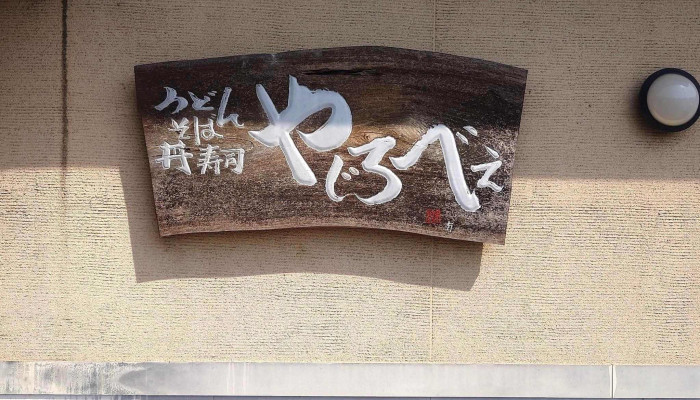 うどん
そば
丼寿司
やじろべえ